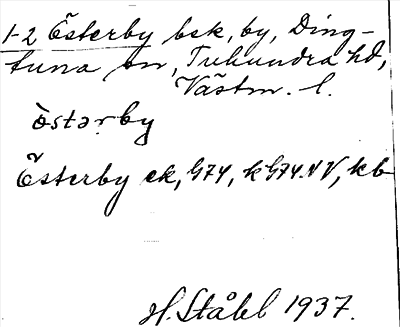 1-2 Österby bsk, by, Ding-
tuna sn, Tuhundra hd,
Västm. l.
östərby
Österby ek, G74, kG74NV, kb
H. Ståhl 1937.